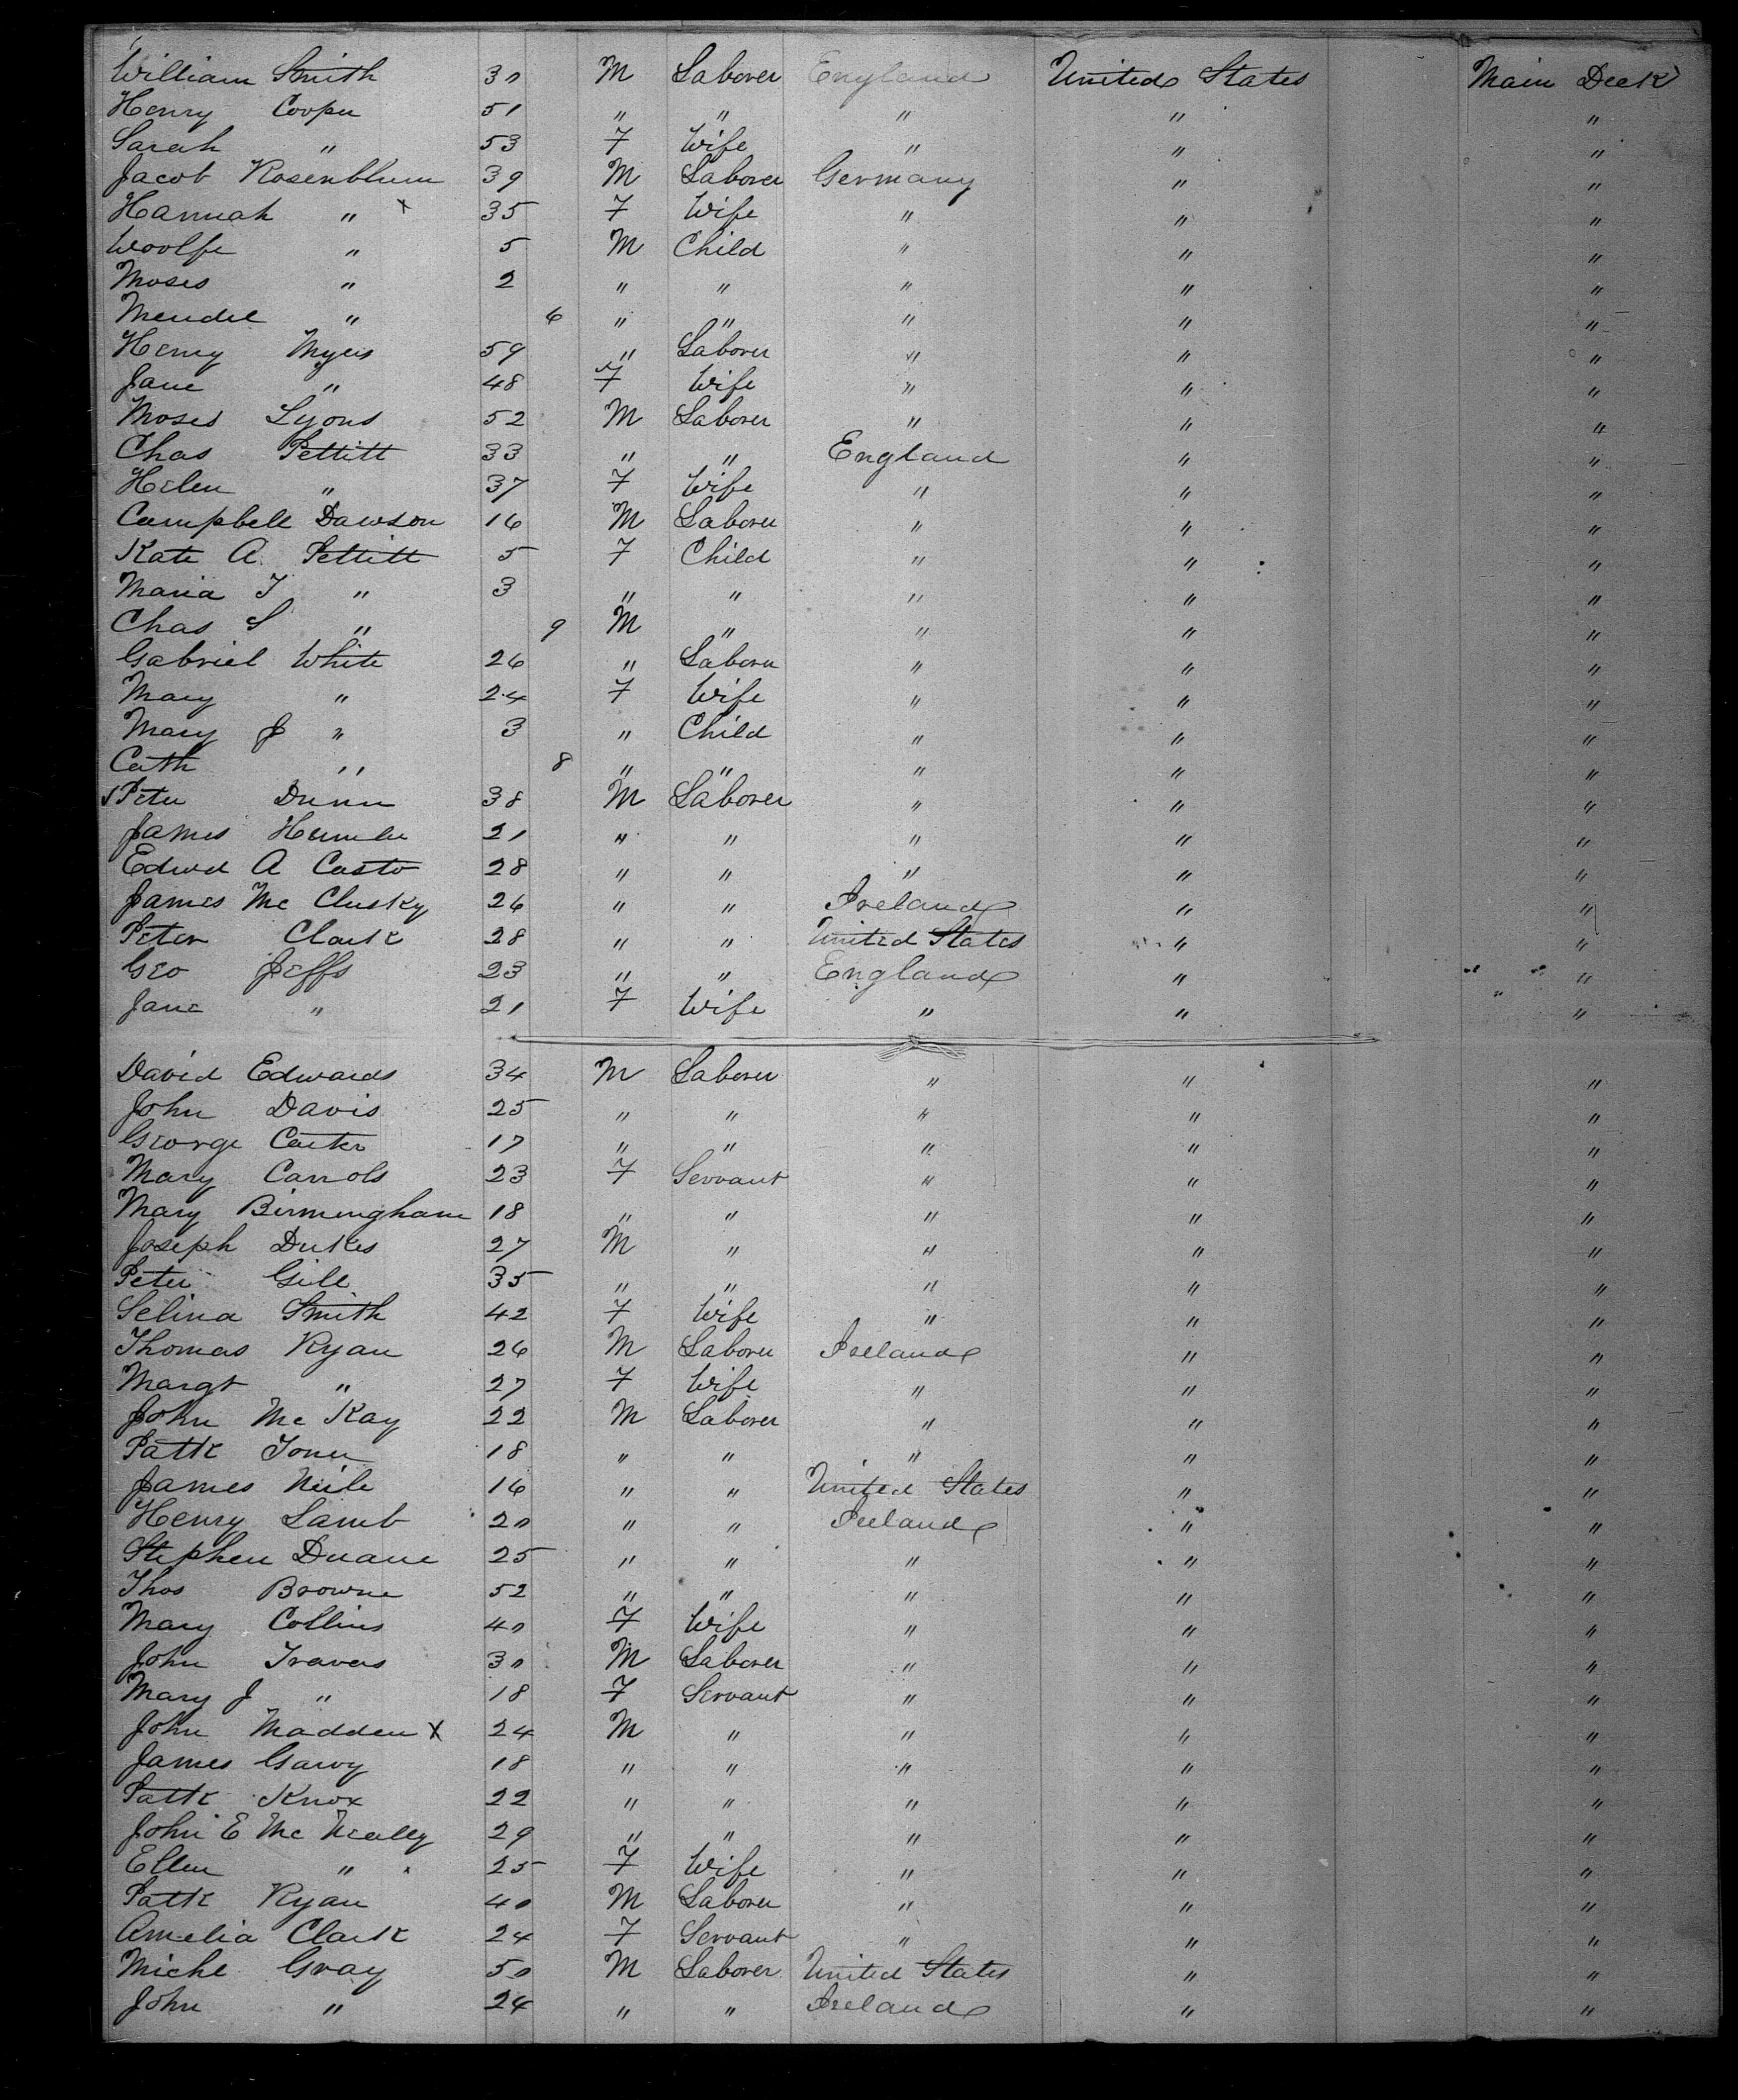 William Smith 30 M Laborer England United States Main Deck
Henry Cooper 51 " " " " "
Sarah " 53 F Wife " " "
Jacob Rosenblum 39 M Laborer Germany " "
Hannah " x 35 F Wife " " "
Woolfe " 5 M Child " " "
Moses " 2 " " " " "
Mendel " 6 " " " " "
Henry Myers 59 " Laborer " " "
Jane " 48 F Wife " " "
Moses Lyons 52 M Laborer " " "
Chas Pettitt 33 " " England " "
Helen " 37 F Wife " " "
Campbell Dawson 16 M Laborer " " "
Kate A. Pettitt 5 F Child " " "
Maria J " 3 " " " " "
Chas S " 9 M " " " "
Gabriel White 26 " Laborer " " "
Mary " 24 F Wife " " "
Mary J " 3 " Child " " "
Cath " 8 " " " " "
Peter Dunn 38 M Laborer " " "
James 21 " " " " "
Edwd A Caster 28 " " " " "
James Mc Clusky 26 " " Ireland " "
Peter Clark 28 " " United States " "
Geo Jeffs 23 " " England " "
Jane " 21 F Wife " " "
David Edwards 34 M Laborer " " "
John Davis 25 " " " " "
George Carter 17 " " " " "
Mary Carrols 23 F Servant " " "
Mary Birmingham 18 " " " " "
Joseph Dukes 27 M " " " "
Peter Gill 35 " " " " "
Selina Smith 42 F Wife " " "
Thomas Ryan 26 M Laborer Ireland " "
Margt " 27 F Wife " " "
John Mc Kay 22 M Laborer " " "
Patk Toner 18 " " " " "
James Neile 16 " " United States " "
Henry Lamb 20 " " Ireland " "
Stephen Duane 25 " " " " "
Thos Browne 52 " " " " "
Mary Collins 40 F Wife " " "
John Travers 30 M Laborer " " "
Mary J " 18 F Servant " " "
John Madden x 24 M " " " "
James Garvy 18 " " " " "
Patk Knox 22 " " " " "
John E Mc Neally 29 " " " " "
Ellen " 25 F Wife " " "
Patk Ryan 40 M Laborer " " "
Amelia Clark 24 F Servant " " "
Michl Gray 50 M Laborer United States " "
John " 24 " " Ireland " "